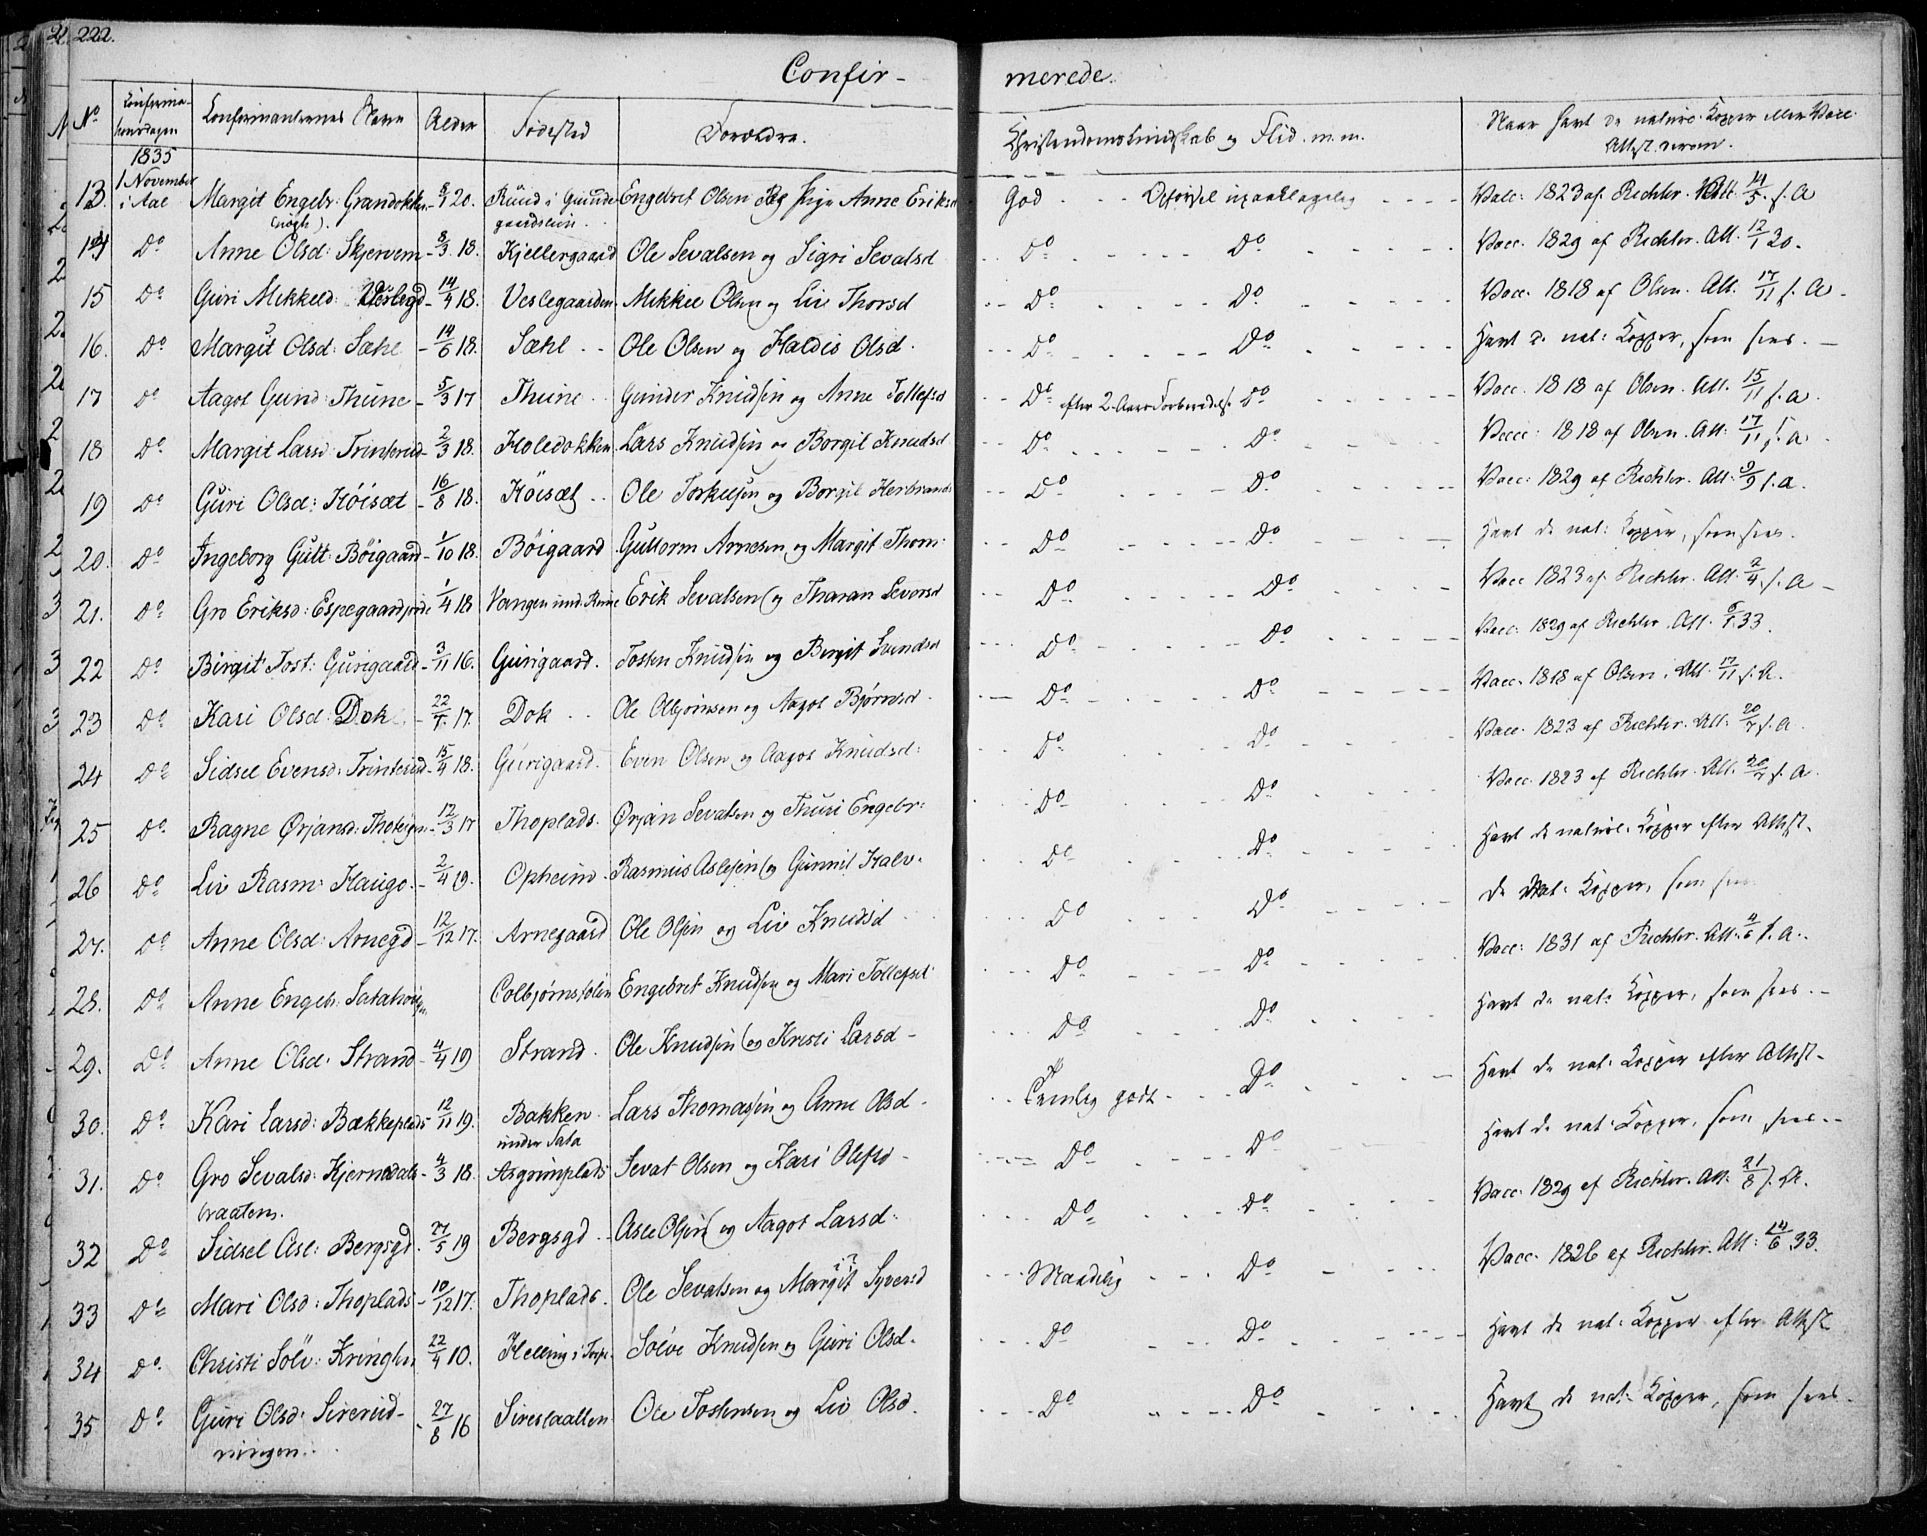 222.
Confir-
merede.
No Confirmationsdagen Confirmanternes Navn Alder Fødested Forældre. Christendomskundskab og Flid m.m. Naar havt de naturl. Kopper eller Vacc. Attest derom.
1835
1 November
i Aal
13. Margit Engebr: Grandokken 20. Ruud i Engebret Olsen og Pige Anne Eriksd God Opførsel upaaklagelig Vacc: 1823 af Richter. Att. 14/5 s. A
14 Do Anne Olsd: Skjervem - 8/3 18. Kjellergaard Ole Sevalsen og Sigri Sevalsd Do Do Vacc. 1829 af Richter. Att. 12/1 30.
15 Do Guri Mikkeld: Veslegd - 14/4 18. Veslegaarden Mikkel Olsen og Liv Thorsd Do Do Vacc. 1818 af Olsen. Att. 17/11 s. A.
16. Do Margit Olsd: Sæhl - 14/6 18. Sæhl Ole Olsen og Haldis Olsd. Do Do Havt d. nat: Kopper, som sees.
17 Do Aagot Gund: Thune - 5/3 17 Thune Gunder Knudsen og Anne Tollefsd Do efter 2 Aars Forberedels. Do Vacc. 1818 af Olsen. Att. 15/11 s. a.
18 Do Margit Larsd: Trinterud - 2/3 18. Holedokken Lars Knudsen og Borgil Knudsd Do Do Vacc: 1818 af Olsen. Att: 17/11 s. a.
19 Do Guri Olsd: Höisæt - 16/8 18. Höisæt Ole Torkelsen og Borgil Herbrands Do Do Vacc: 1829 af Richter. Att: 9/9 s. a.
20. Do Ingeborg Gutt: Böigaard - 1/10 18. Böigaard Guttorm Arnesen og Margit Thom: Do Do Havt de nat: Kopper, som sees.
21. Do Gro Eriksd: Espegaard 1/4 18 Vangen und. Erik Sevalsen og Tharan Seversd Do Do Vacc 1823 af Richter. Att. 2/4 s. A
22 Do Birgit Tost: Gurigaard - 3/11 16. Gurigaard. Tosten Knudsen og Birgit Svendsd Do Do Vacc: 1829 af Richter. Att. 33.
23 Do Kari Olsd: Dok - 22/7 17. Dok Ole Asbjørnsen og Aagot Bjørnsd Do Do Vacc. 1818 af Olsen. Att. 17/11 s. A.
24 Do Sidsel Evensd: Trinterud - 15/4 18. Gurigaard. Even Olsen og Aagot Knudsd: Do Do Vacc. 1823 af Richter. Att: 20/7 s. A.
25 Do Ragne Ørjansd: - 12/3 17 Thoplads. Ørjan Sevatsen og Thuri Engebr: Do Do Vacc. 1823 af Richter. Att. 20/7 s. A.
26 Do Liv Rasm: Haugo. - 2/4 19. Opheim Rasmus Aslesen og Gunnil Halv: Do Do Havt de naturl: Kopper efter Attest.
27. Do Anne Olsd: Arnegd - 12/12 17. Arnegaard Ole Olsen og Liv Knudsd Do Do de nat: Kopper, som sees
28. Do Anne Engeb: Colbjørnsstølen Engebret Knudsen og Mari Tollefsd Do Do Vacc: 1831 af Richter. Att: 4/6 s. a.
29. Do Anne Olsd: Strand - 4/4 19 Strand. Ole Knudsen og Kristi Larsd - Do Do Havt de nat: Kopper, som sees.
30. Do Kari Larsd: Bækkeplads 12/11 19. Bakken under Sata Lars Thomassen og Anne Olsd - Temlig godt Do Havt de nat: Kopper efter Attest.
31. Do Gro Sevalsd: Kjerndalsbraaten. - 4/3 18. Asgrimplads Sevat Olsen og Kari Olefsd - Do Do Havt de nat: Kopper, som sees.
32 Do Sidsel Asl: Bergsgd. 27/5 19 Bergsgd Asle Olsen og Aagot Larsd. Do Do Vacc: 1829 af Richter. Att: 21/8 s. A.
33 Do Mari Olsd: Thoplads - 10/12 17. Thoplads. Ole Sevalsen og Margit Syversd Maadelig Do Vacc. 1826 af Richter. Att: 14/6 33.
34 Do Christi Sölv: 22/4 10. Helling i Sölve Knudsen og Guri Olsd. Do Do Havt de nat: Kopper efter Attest
35 Do Guri Olsd: Sirerud - 27/8 16 Ole Tostensen og Liv Olsd. Do Do Havt de nat: Kopper, som sees.